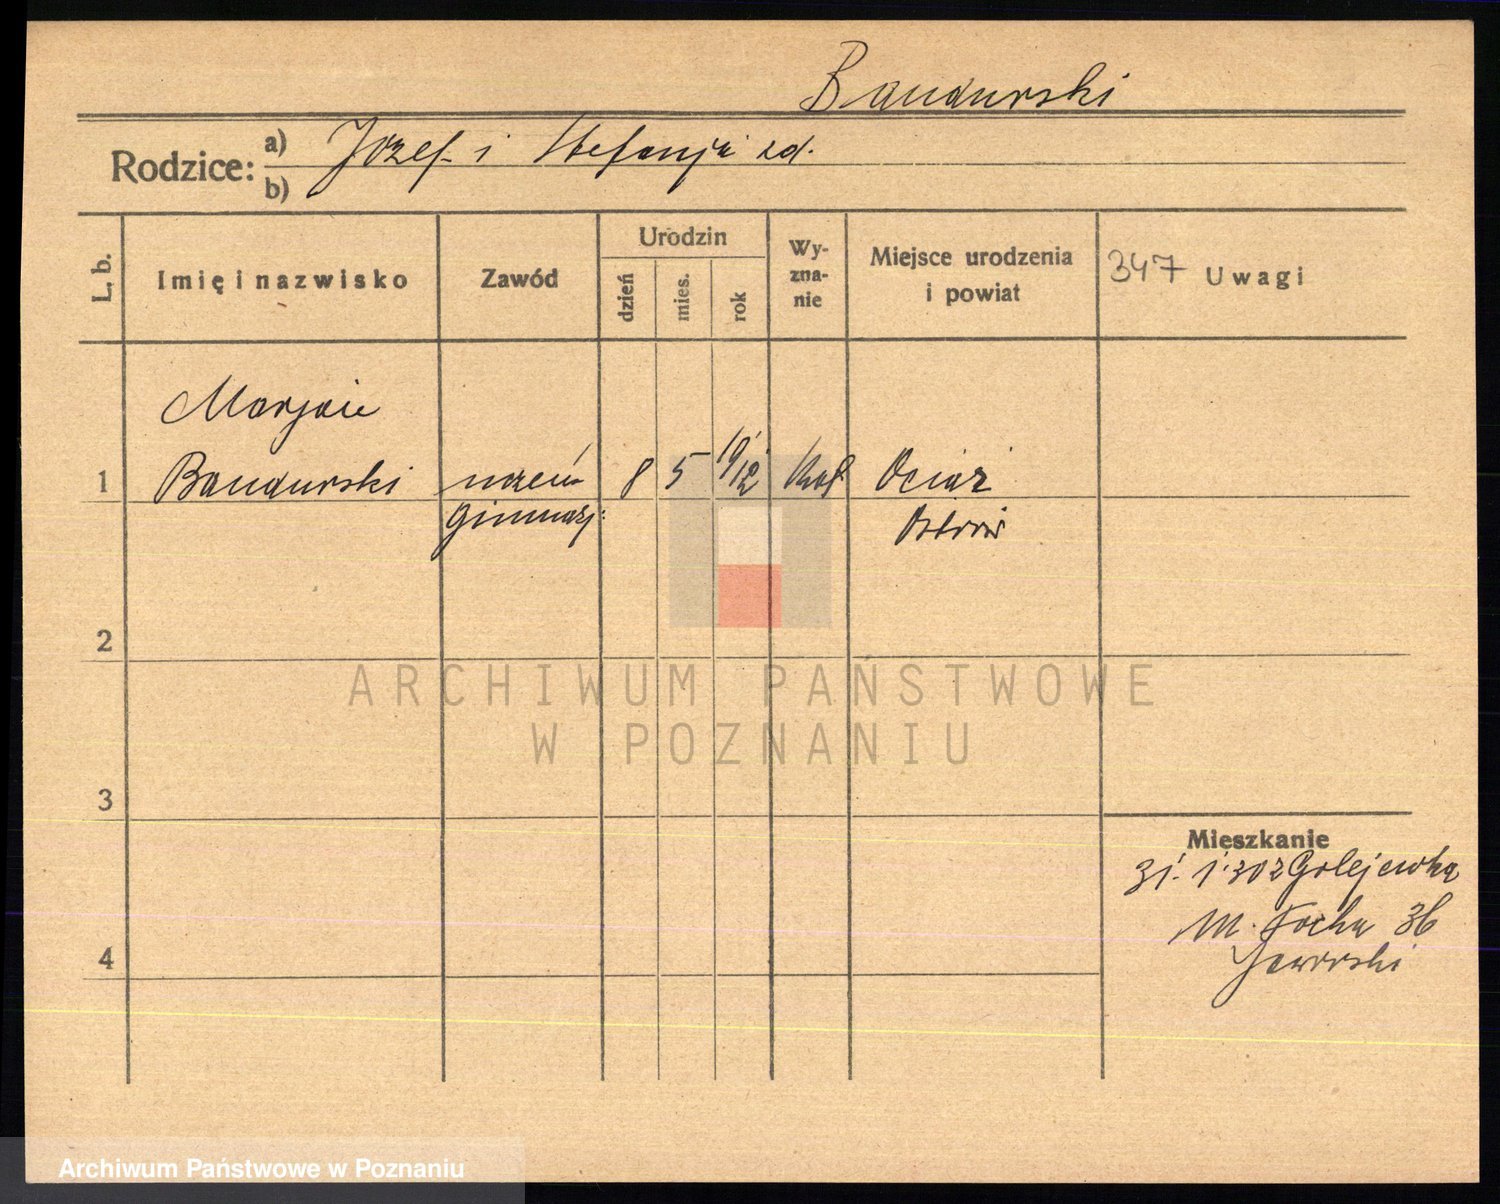 Bandurski
Rodzice: a) Józef i Stefanja zd.
b)
L. b.
Imię i nazwisko
Zawód
Urodzin
dzień
mies.
rok
Wy-
zna-
nie
Miejsce urodzenia
i powiat
347 Uwagi
Marjan
1 Bandurski uczeń 8 5 1912 Kat Ociąż
gimnazj: Ostrów
2
ARCHIWUM PAŃSTWOWE
W POZNANIU
3
Mieszkanie
31. 1. 30 z Golejewka
M. Focha 36
Jaworski
4
Archiwum Państwowe w Poznaniu